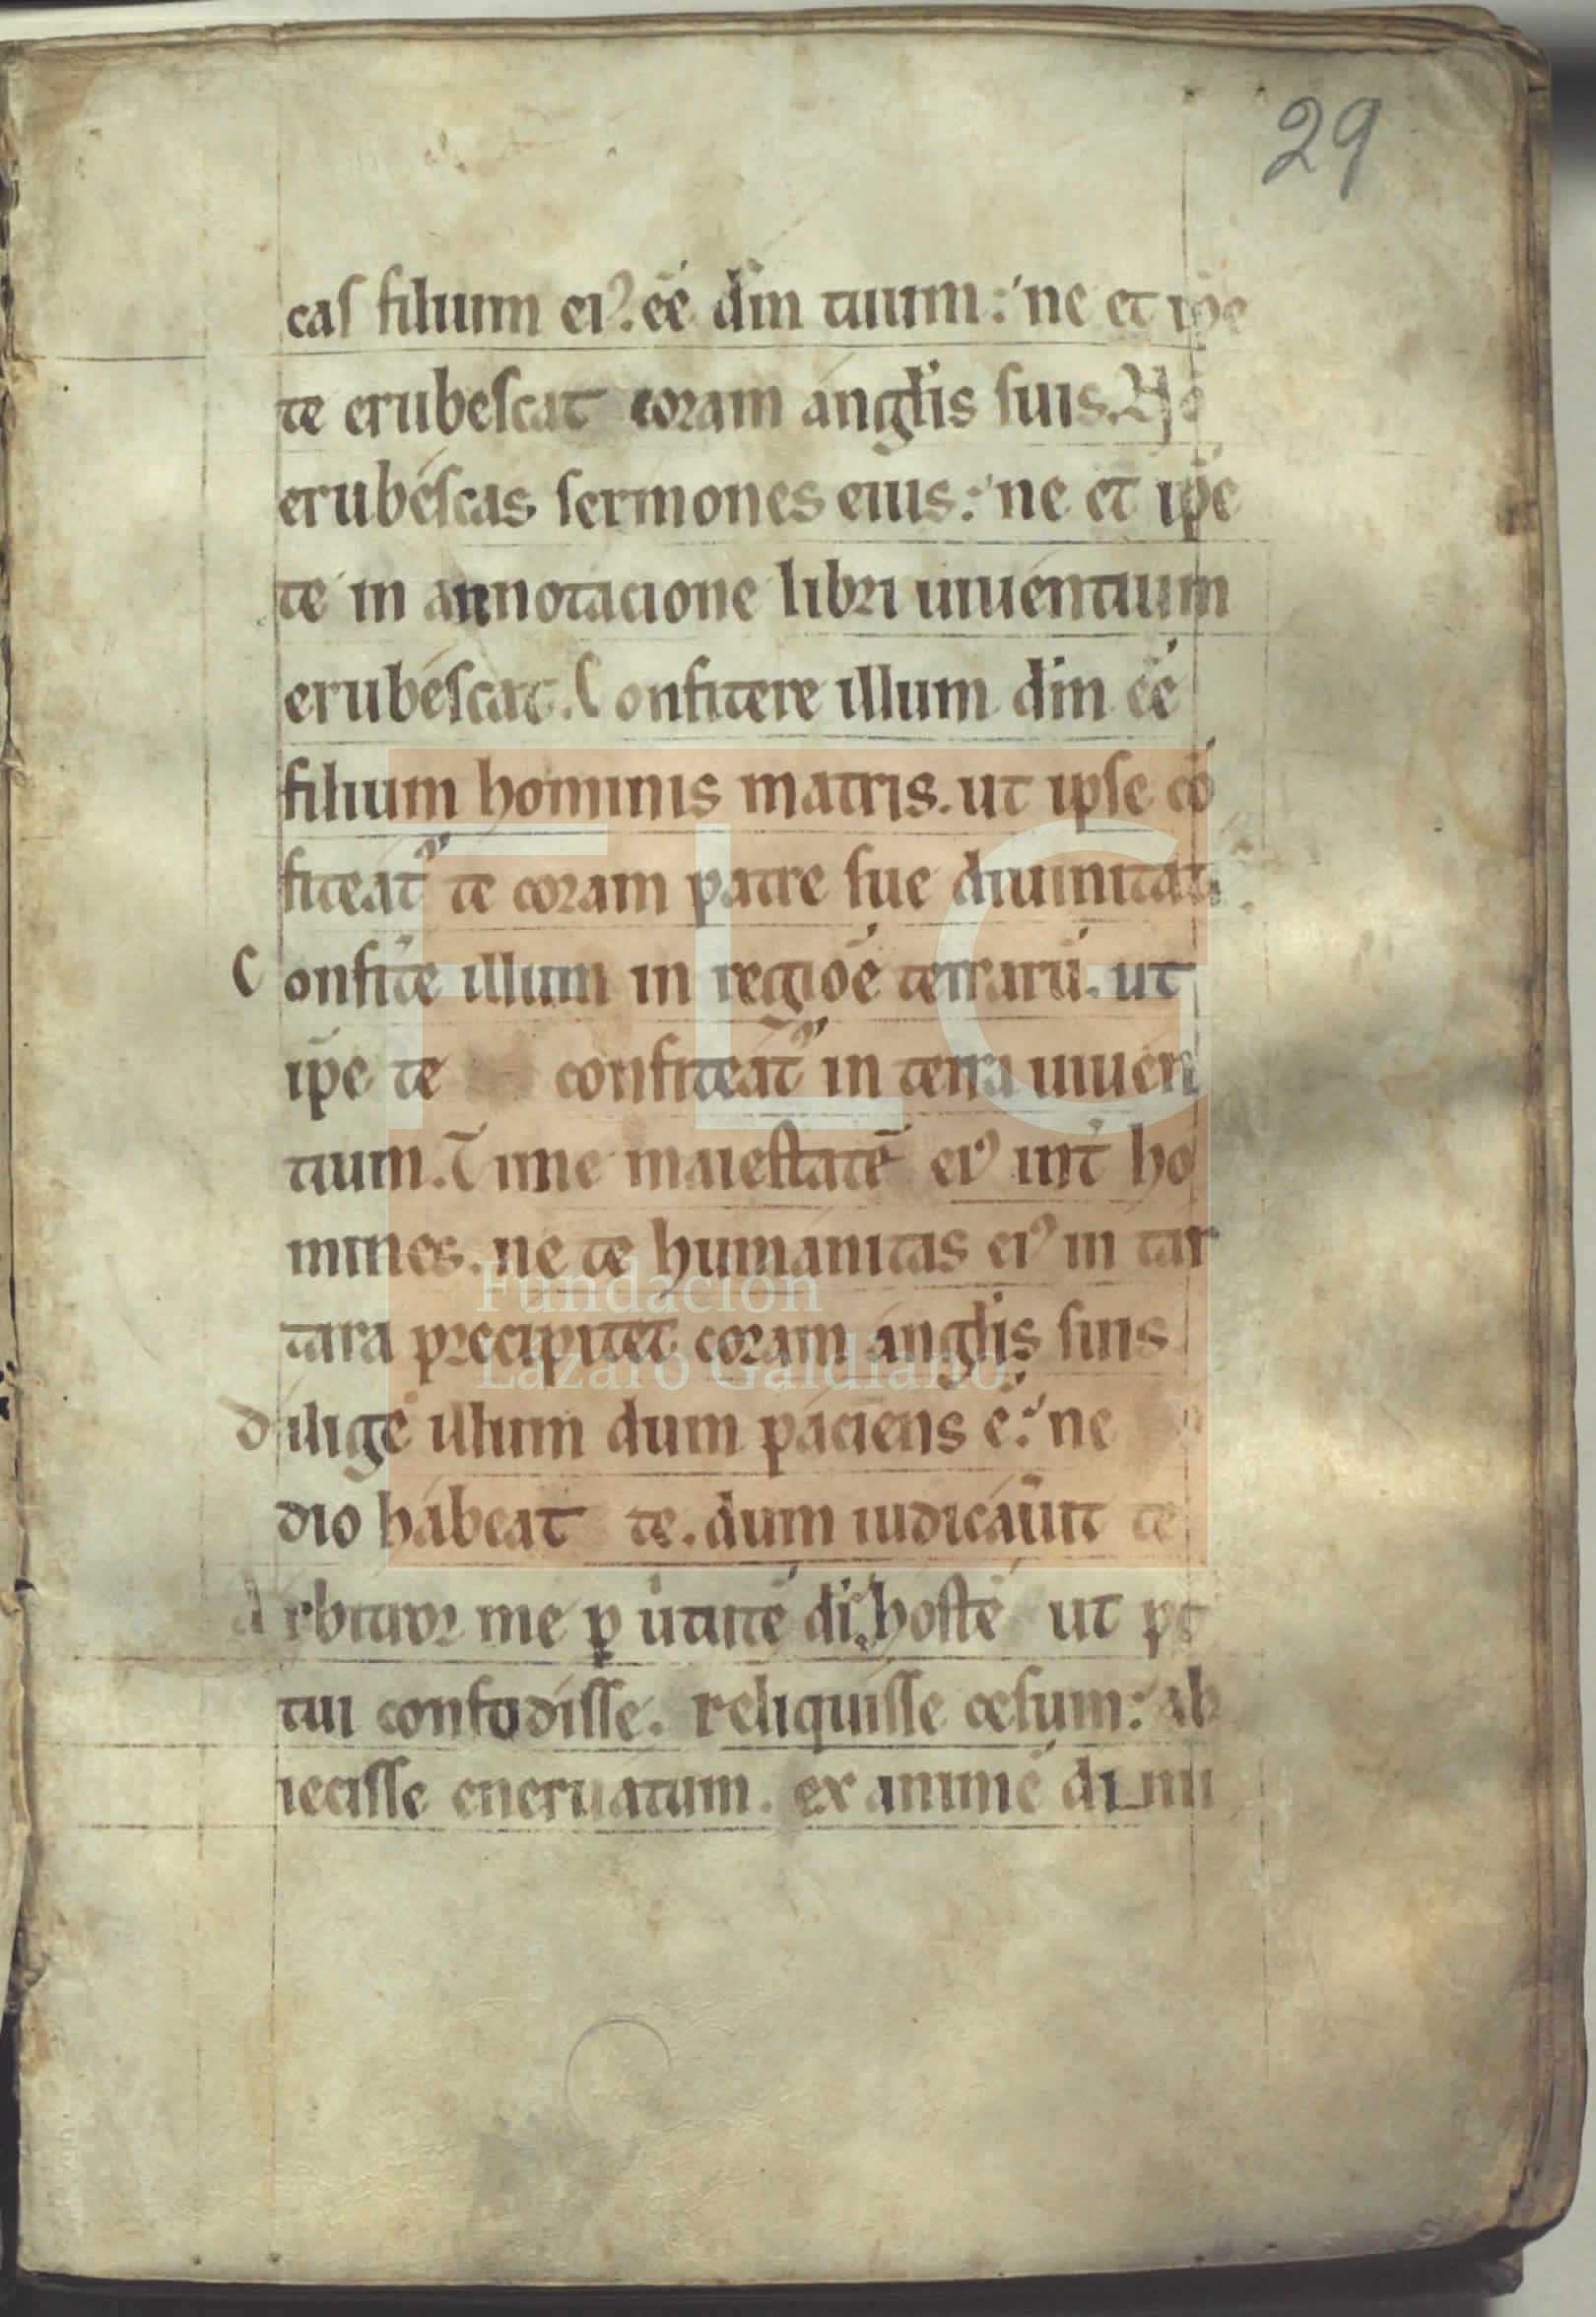 29
cas filium ei⁹. eē dm̄ tuum: ne et ip̄e
te erubescat coram angl̄is suis. No
erubescas sermones eius: ne et ip̄e
te in annotacione libri uiuentium
erubescat. Confitere illum dm̄ eē
filium hominis matris. ut ipse cō
fiteat᷑ te coram patre sue diuinitat
Confite illum in regiōe terrarū. ut
ip̄e te confiteat᷑ in terra uiuen
tium. Time maiestatē ei⁹ int̄ ho
mines. ne te humanitas ei⁹ in tar
tara precipitet coram angl̄is suis
dilige illum dum paciens ē: ne
dio habeat te. dum iudicau̅it te
Arbitror me ꝑ u̅itatē dī hostē ut
tui confodisse. reliquisse cesum: ab
iecisse eneruatum. ex animē di mi
Fundación
Lázaro Galdiano
FLG